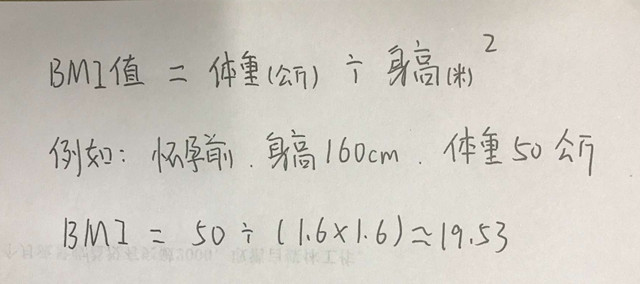 BMI值 = 体重(公斤) ÷ 身高(米)²
例如: 怀孕前. 身高160cm. 体重50公斤
BMI = 50 ÷ (1.6×1.6)≈19.53